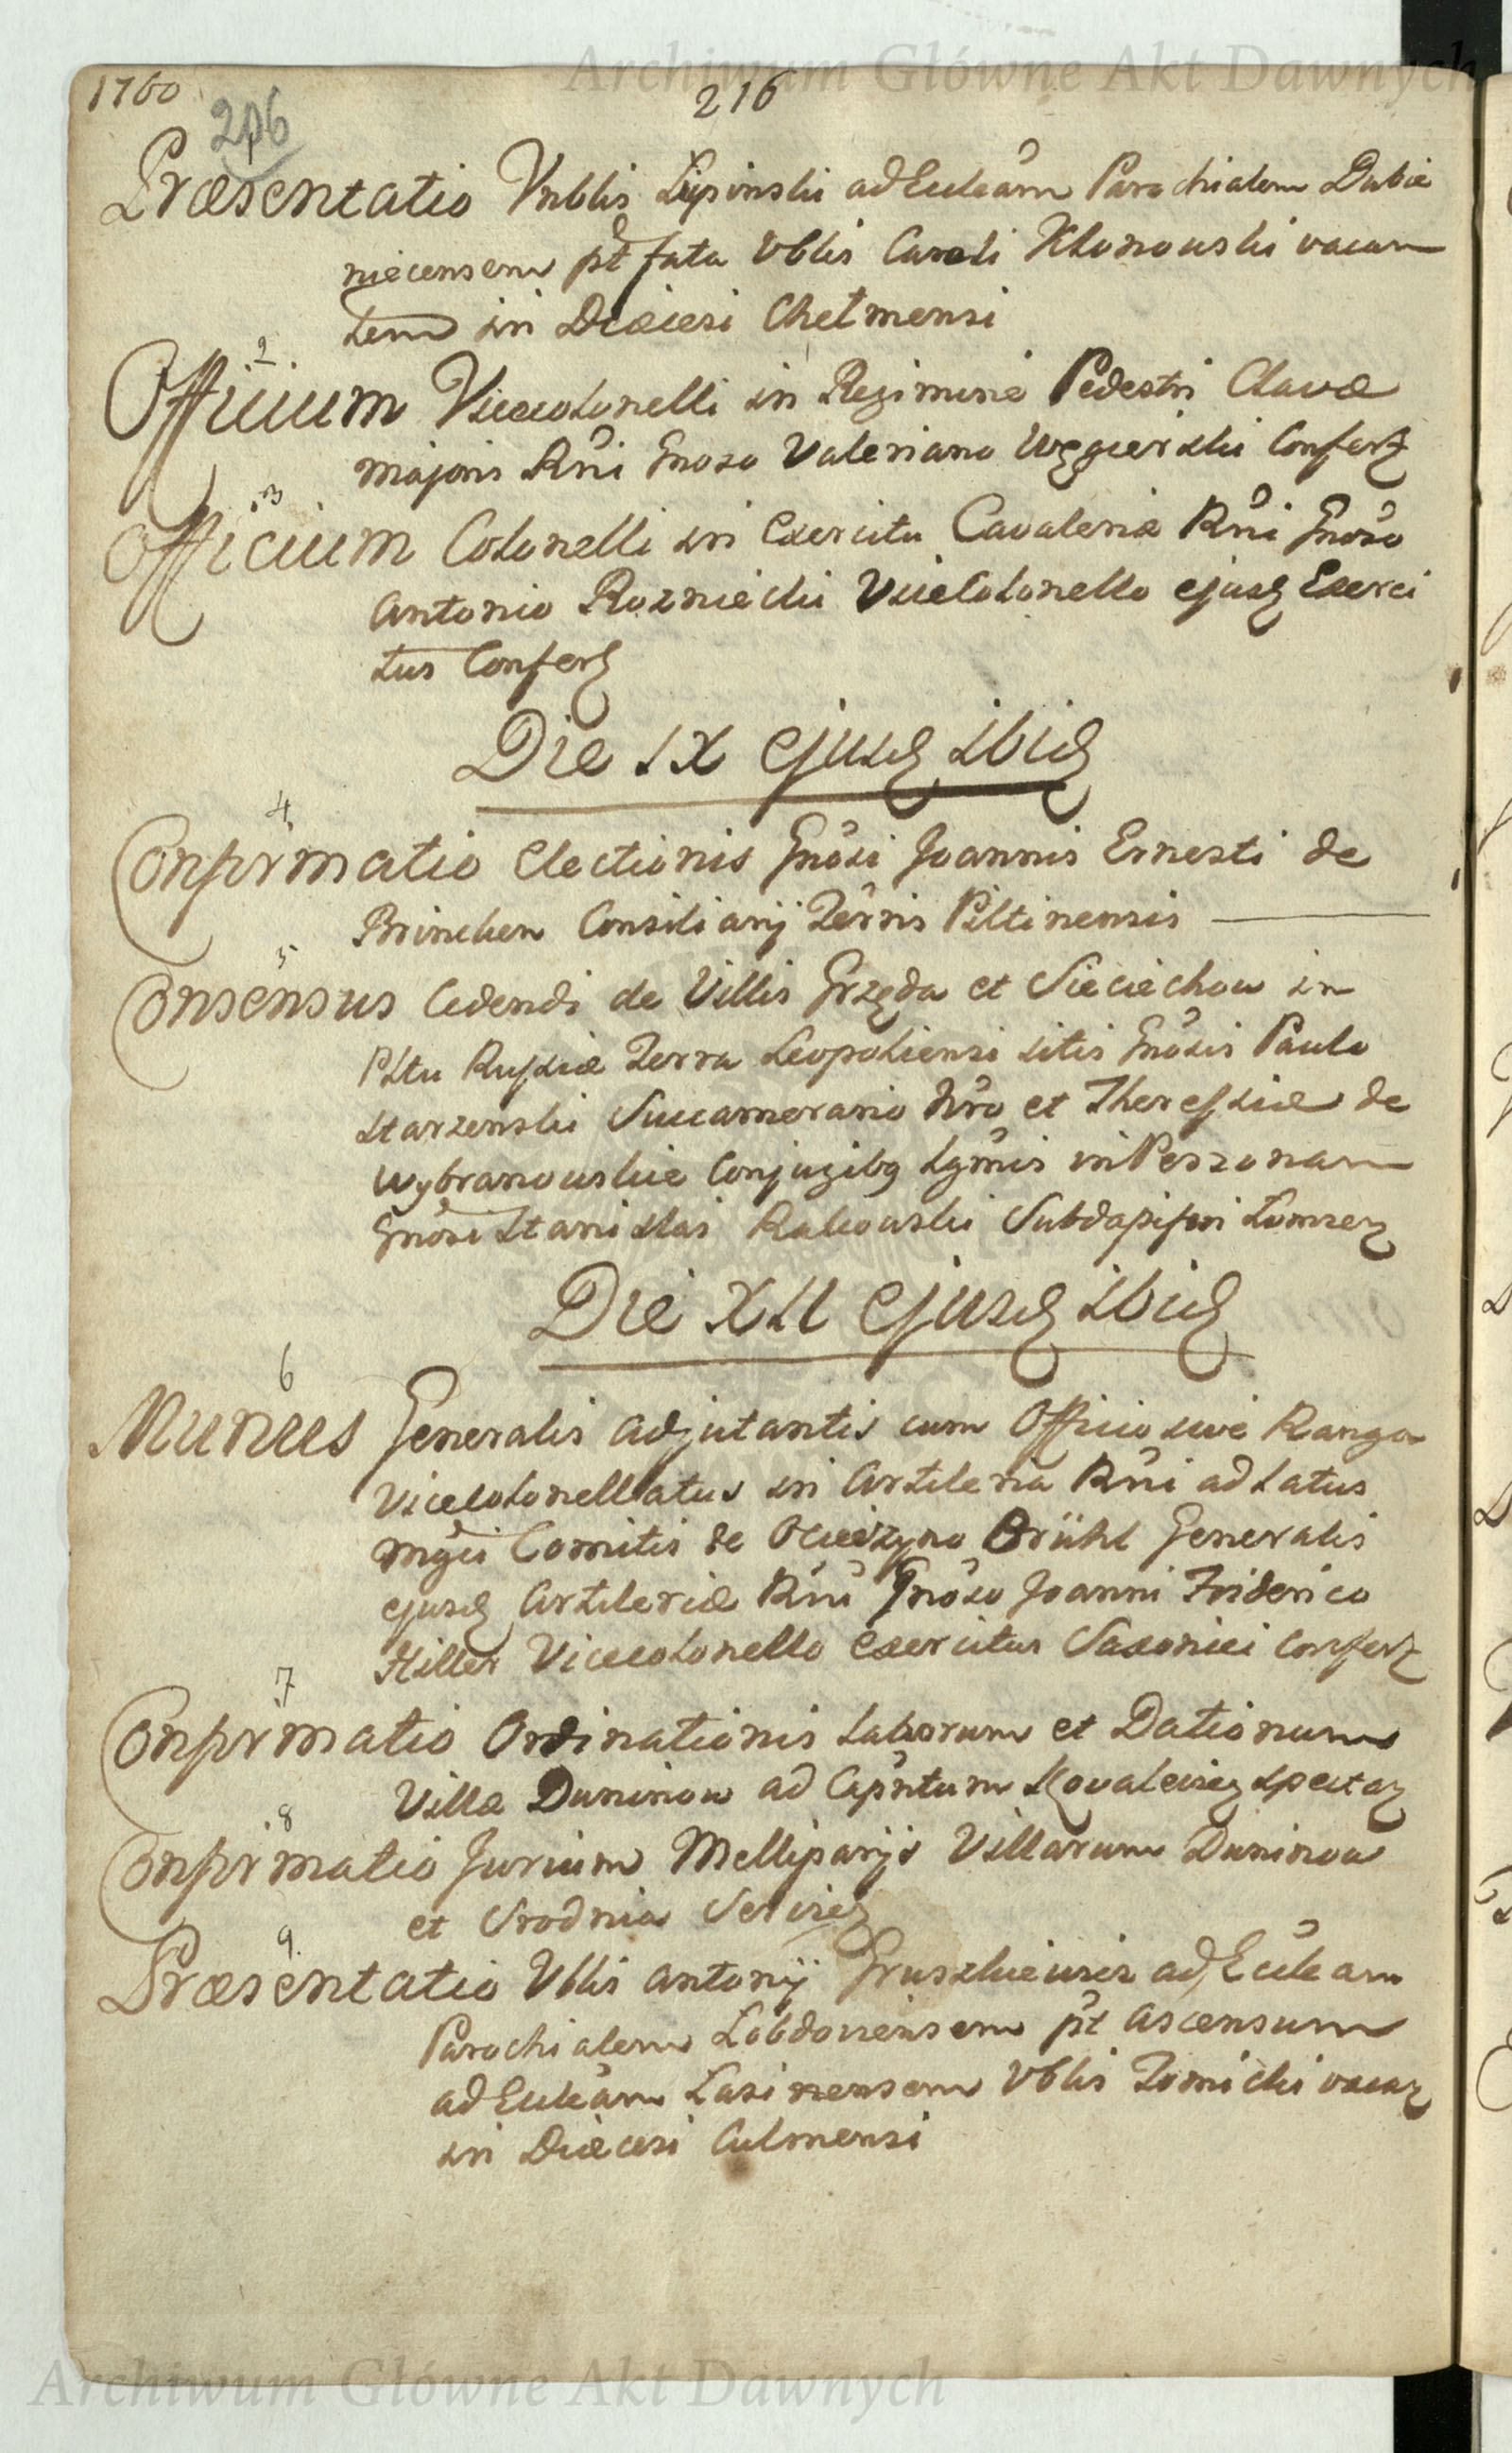 Archiwum Główne Akt Dawnych
1760
216
206
Præsentatio Vnblis Lipinski ad Eccleam Parochialem Dubie
niecensem pt fata Vblis Caroli Klonowski vacan
tem in Diæcesi Chelmensi
2
Officium Vicecolonelli in Regimine Pedestri Clavæ
majoris Rni Gnoso Valeriano Węgierski Confert
3
Officium Colonelli in Exercitu Cavaleriæ Rni Gnoso
Antonio Rozniecki ViceColonello ejusd Exerci
tus Confert
Die IX ejusd ibid
4
Confirmatio Electionis Gnosi Joannis Ernesti de
Brincken Consiliarij Terris Piltinensis
5
Consensus Cedendi de Villis Grzęda et Sieciechow in
Pltu Russiæ Terra Leopoliensi sitis Gnosis Paulo
Starzenski Succamerario Nro et Theressiæ de
Wybranowskie Conjugibq Lgmis in Personam
Gnosi Stanislai Rakowski Subdapiferi Lomzen
Die XII ejusd ibid
6
Munus Generalis Adjutantis cum Officio sive Ranga
Vicecolonellatus in Artileria Rni ad Latus
Mgci Comitis de Ocieszyno Brühl Generalis
ejusd Artileriæ Rni Gnoso Joanni Friderico
Hiller Vicecolonello Exercitus Saxonici Confert
7
Confirmatio Ordinationis Laborum et Dationum
Villæ Duninow ad Cap̃ntum Kovalewien spectan
8
Confirmatio Jurium Melliparijs Villarum Duninow
et Srodnia
9.
Præsentatio Vblis Antonij Gruszkiewicz ad Eccleam
Parochialem Lobdoviensem pt Ascensum
ad Eccleam Lasinensem Vblis Tomicki vacan
in Diæcesi Culmensi
Archiwum Główne Akt Dawnych